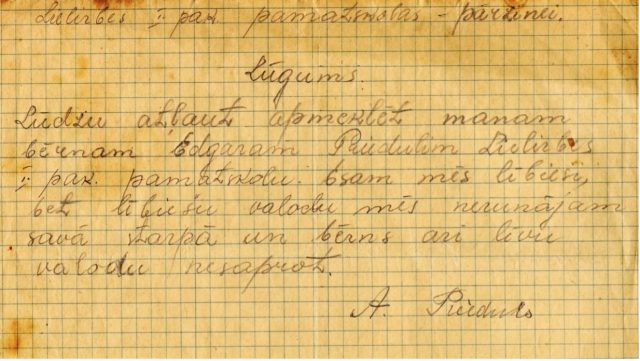 Lielirbes I pak. pamatskolas - pārzinei.
Lūgums.
Lūdzu atļaut apmeklēt manam
bērnam Edgaram Priedulim Lielirbes
I pak. pamatskolu. Esam mēs lībieši,
bet lībiešu valodu mēs nerunājam
savā starpā un bērns arī līvu
valodu nesaprot.
A. Prieduls